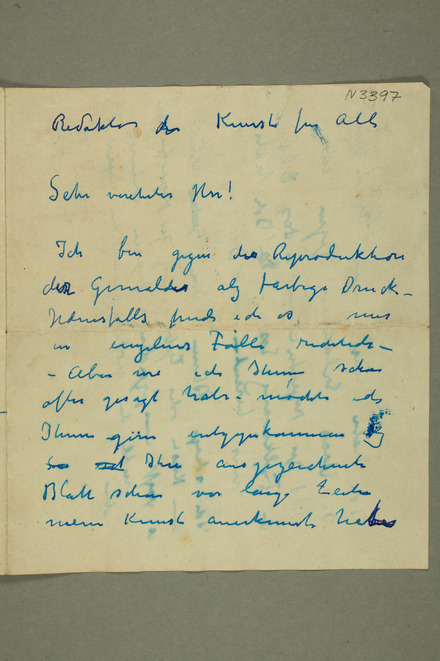 N 3397
Redaktør der Kunst für Alle
Sehr verehrter Herr!
Ich bin gegen die Reproduktion
der Gemälde als farbige Druck –
Jedenfalls finde ich es nur
in einzelnes Fälle
– Aber wie ich Ihnen schon
öfter gesagt habe – möchte ich
Ihnen gern entgegenkommen
Ihre ausgezeichnete
Blatt schon vor lange Zeit
meine Kunst anerkennt habe